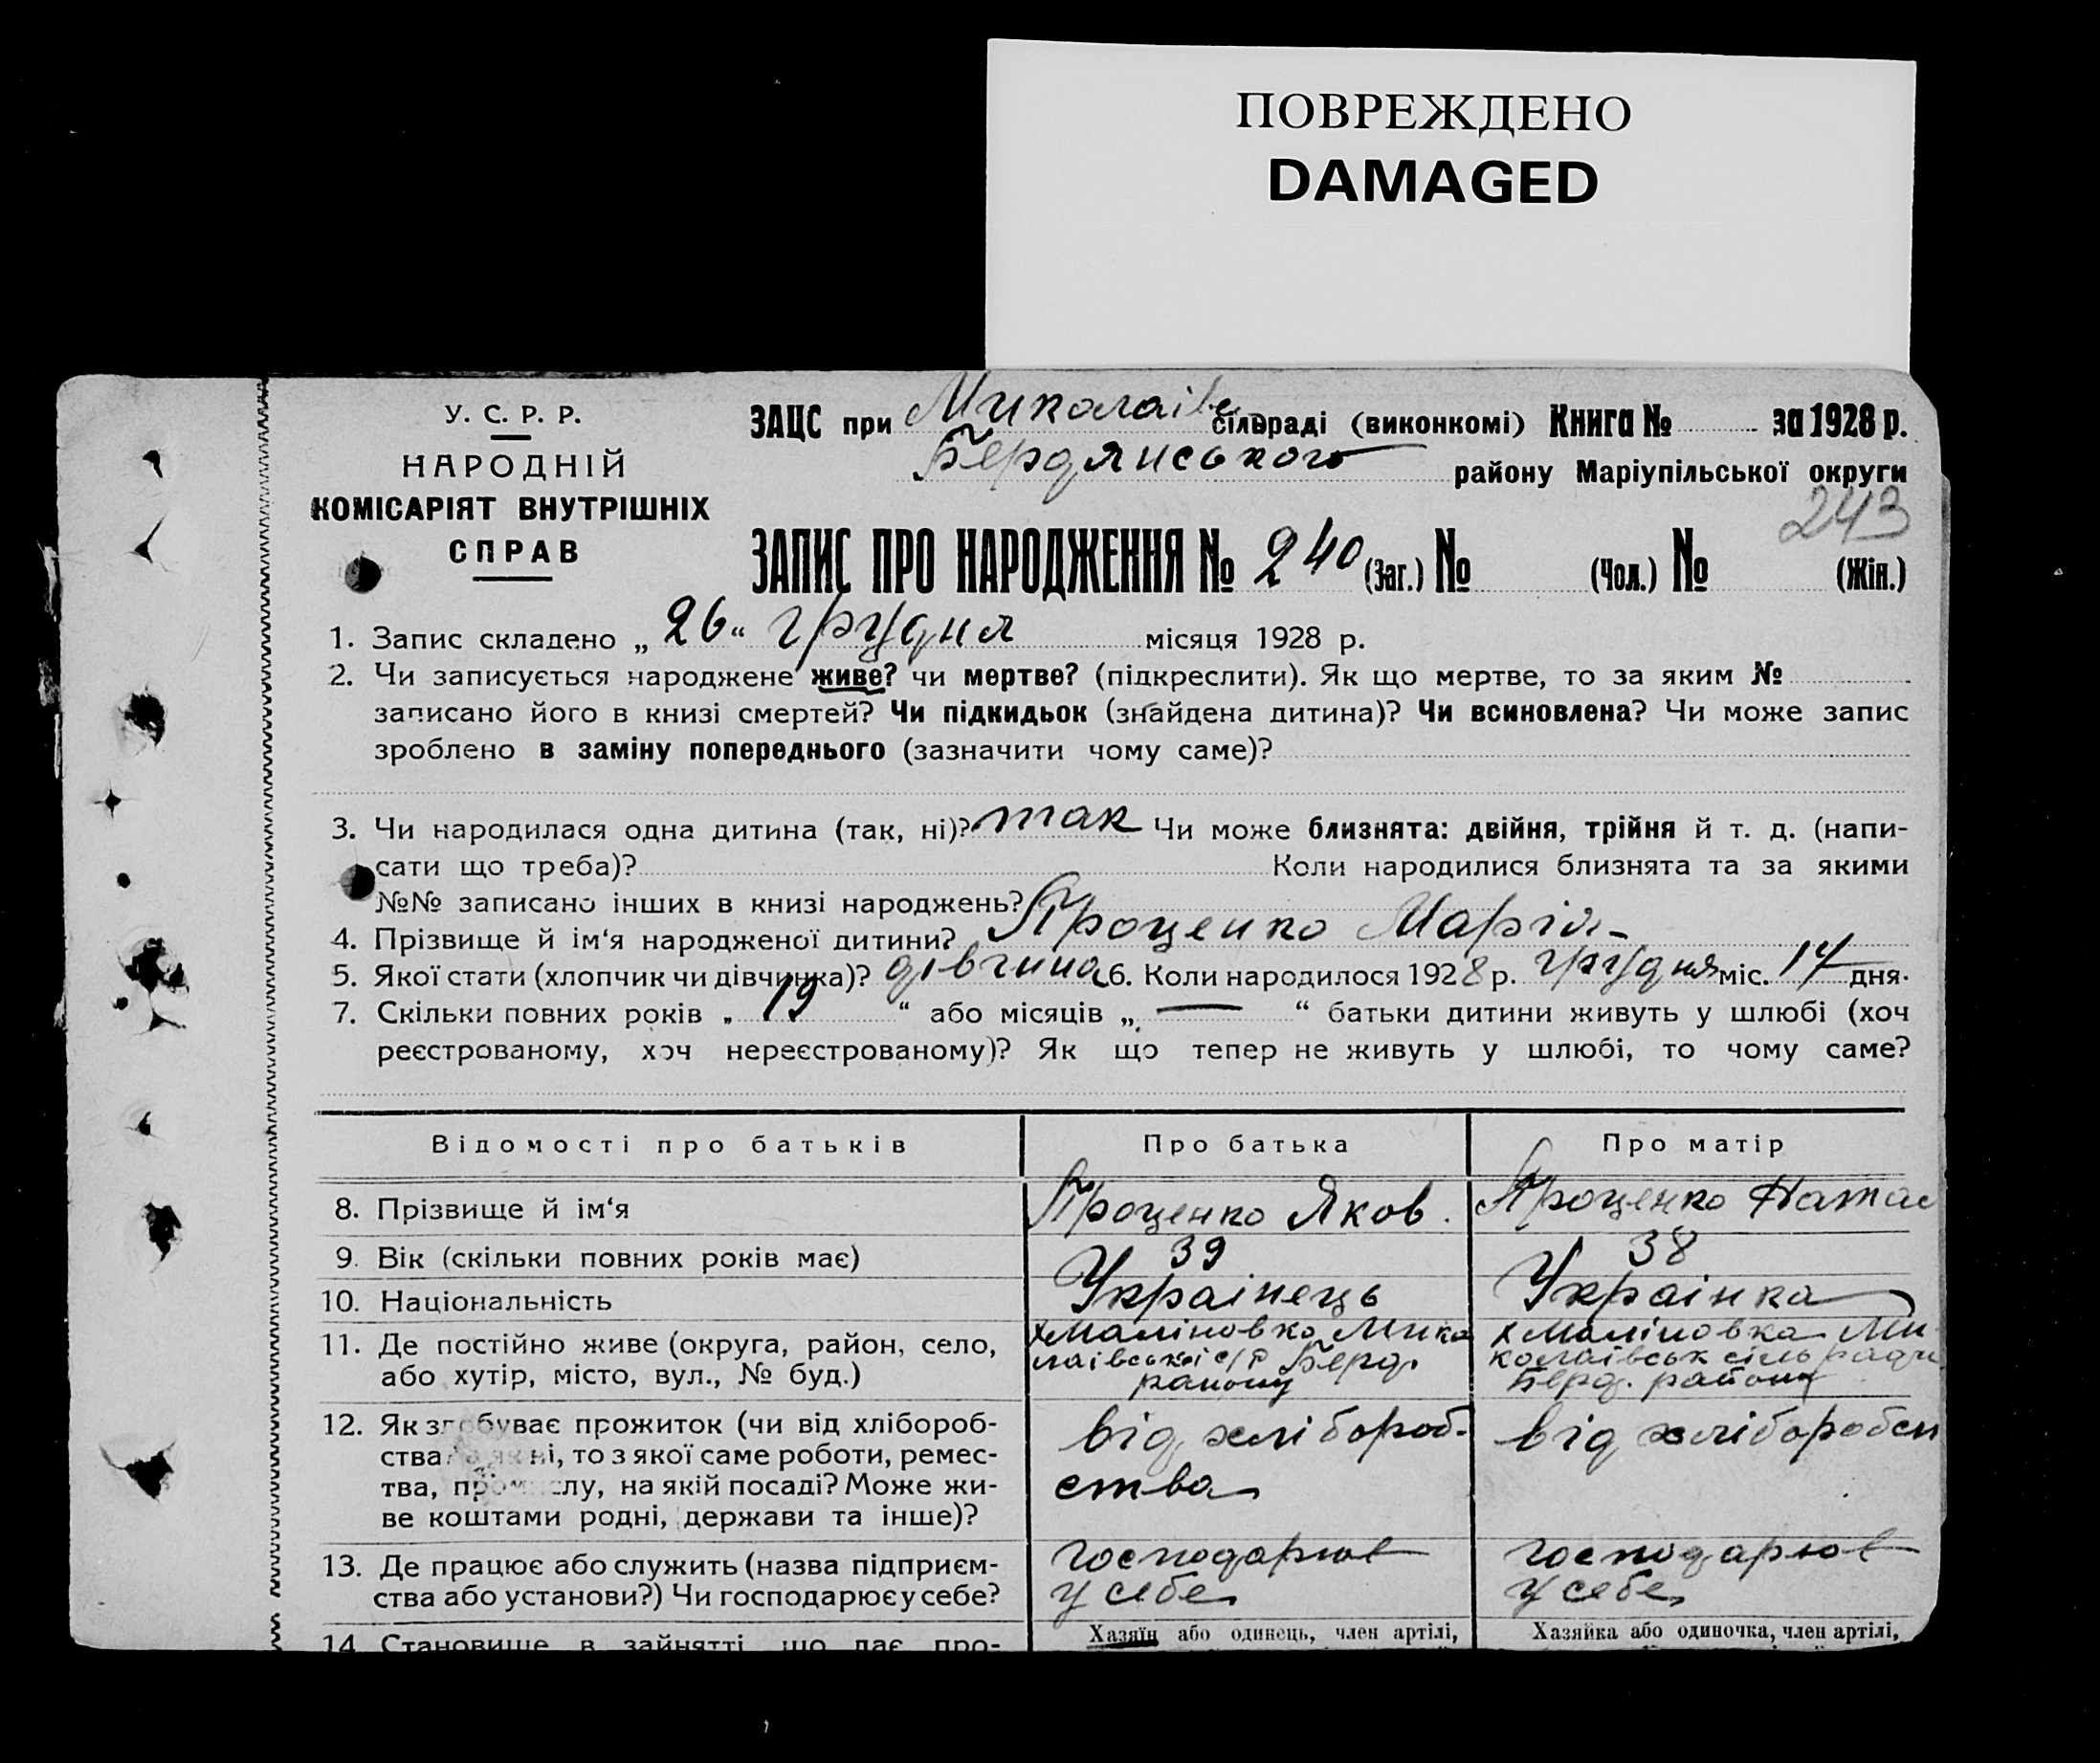 ПОВРЕЖДЕНО
DAMAGED
У. С. Р. Р.
НАРОДНІЙ
КОМІСАРІЯТ ВНУТРІШНІХ
СПРАВ
ЗАЦС при Миколаівс сільраді (виконкомі) Книга № за 1928 р.
Бердянського району Маріупільської округи
243
ЗАПИС ПРО НАРОДЖЕННЯ № 240 (Заг.) № (Чол.) № (Жін.)
1. Запис складено „ 26 “ грудня місяця 1928 р.
2. Чи записується народжене живе? чи мертве? (підкреслити). Як що мертве, то за яким №
записано його в книзі смертей? Чи підкидьок (знайдена дитина)? Чи всиновлена? Чи може запис
зроблено в заміну попереднього (зазначити чому саме)?
3. Чи народилася одна дитина (так, ні)? так Чи може близнята: двійня, трійня й т. д. (напи-
сати що треба)? Коли народилися близнята та за якими
№№ записано інших в книзі народжень?
4. Прізвище й ім‘я народженої дитини? Проценко Марія
5. Якої стати (хлопчик чи дівчинка)? дівчина 6. Коли народилося 1928 р. грудня міс. 14 дня.
7. Скільки повних років „ 19 “ або місяців „ — “ батьки дитини живуть у шлюбі (хоч
реєстрованому, хоч нереєстрованому)? Як що тепер не живуть у шлюбі, то чому саме?
Відомості про батьків Про батька Про матір
8. Прізвище й ім‘я Проценко Яков. Проценко Натал
9. Вік (скільки повних років має) 39 38
10. Національність Украінець Украінка
11. Де постійно живе (округа, район, село,
або хутір, місто, вул., № буд.)
х Маліновка Мико
лаівськоі с/р Берд.
району
х Маліновка Ми
колаівськ сільради
Берд. району
12. Як здобуває прожиток (чи від хлібороб-
ства? а як ні, то з якої саме роботи, ремес-
тва, промислу, на якій посаді? Може жи-
ве коштами родні, держави та інше)?
від хлібороб-
ства
від хлиборобсь
13. Де працює або служить (назва підприєм-
ства або установи?) Чи господарює у себе?
господарює
у себе
господарює
у себе
14. Становище в зайнятті, що дає про-
Хазяїн або одинець, член артілі,
Хазяйка або одиночка, член артілі,